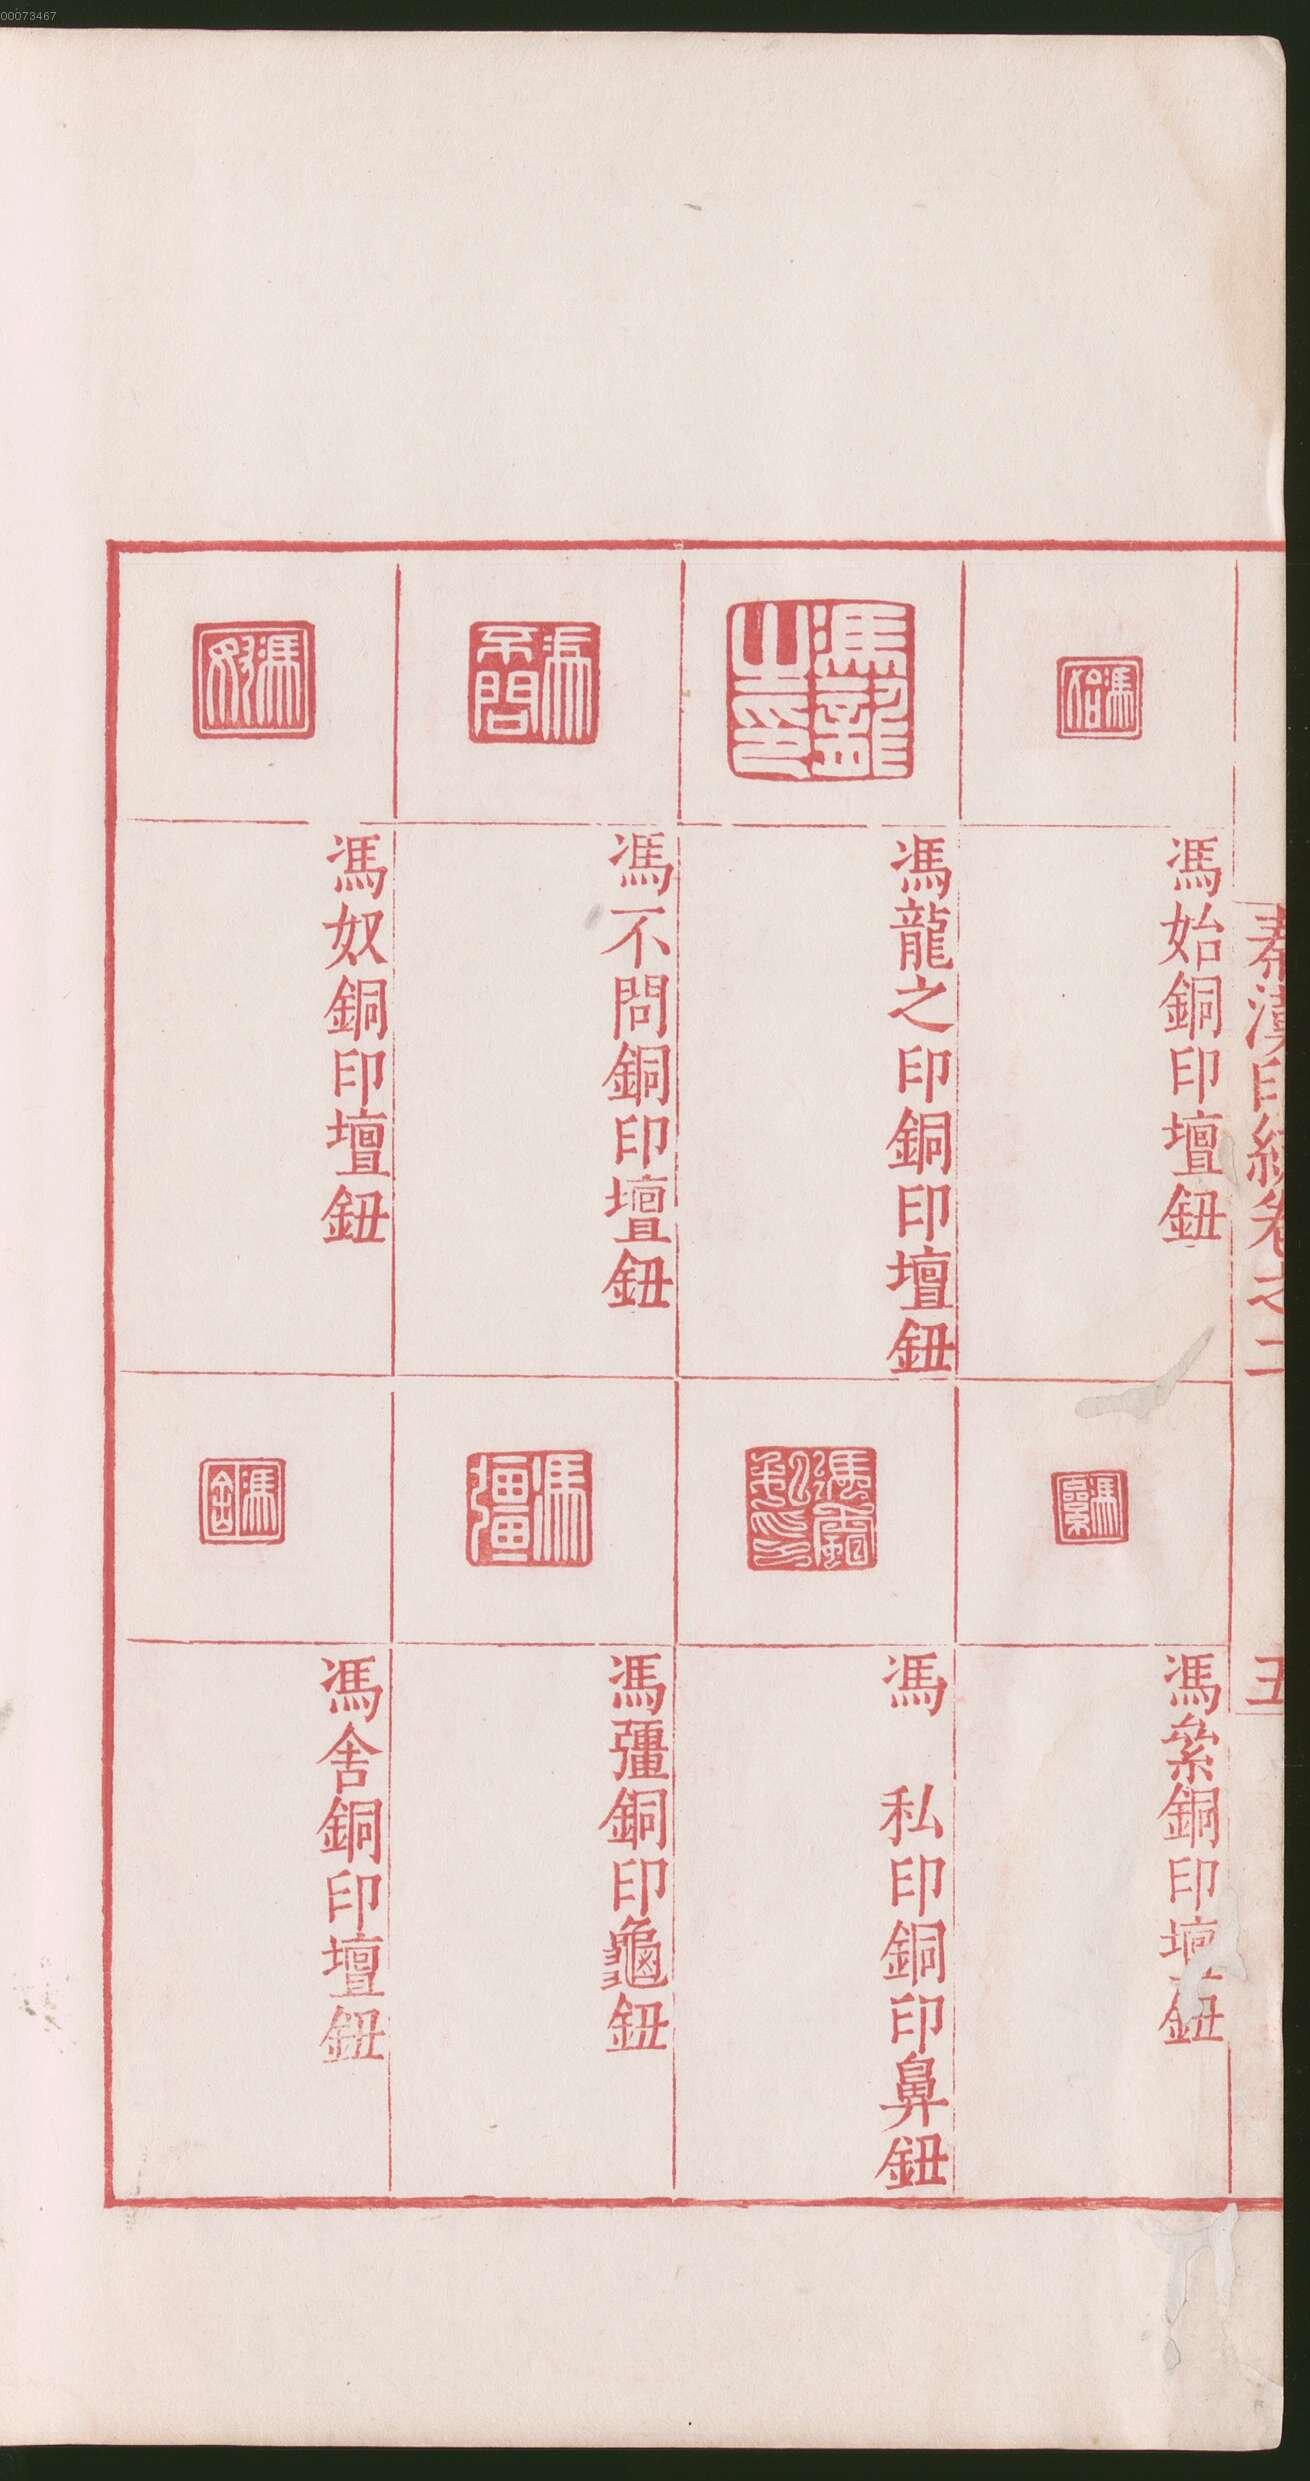 00073467
秦漢印統卷之二
五
馮始銅印壇鈕
馮龍之印銅印壇鈕
馮不問銅印壇鈕
馮奴銅印壇鈕
馮絫銅印壇鈕
馮 私印銅印鼻鈕
馮彊銅印龜鈕
馮舍銅印壇鈕